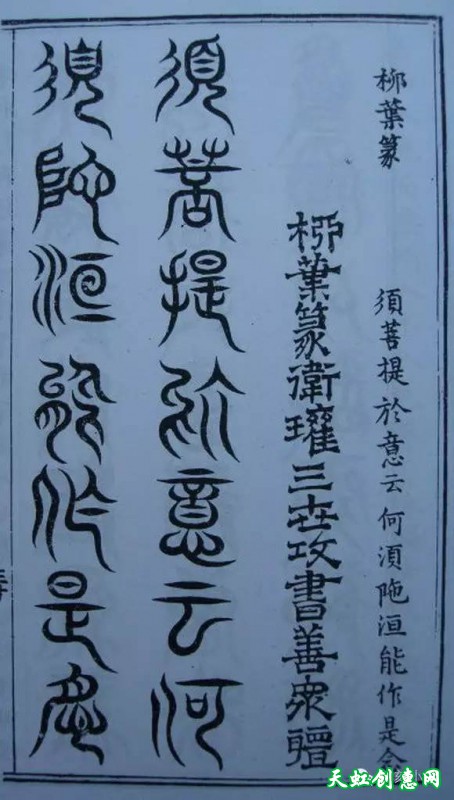 柳葉篆
須菩提於意云何須陁洹能作是念
柳葉篆衛瓘三世攻書善衆體
須菩提於意云何
須陁洹能作是念
天虹创意网